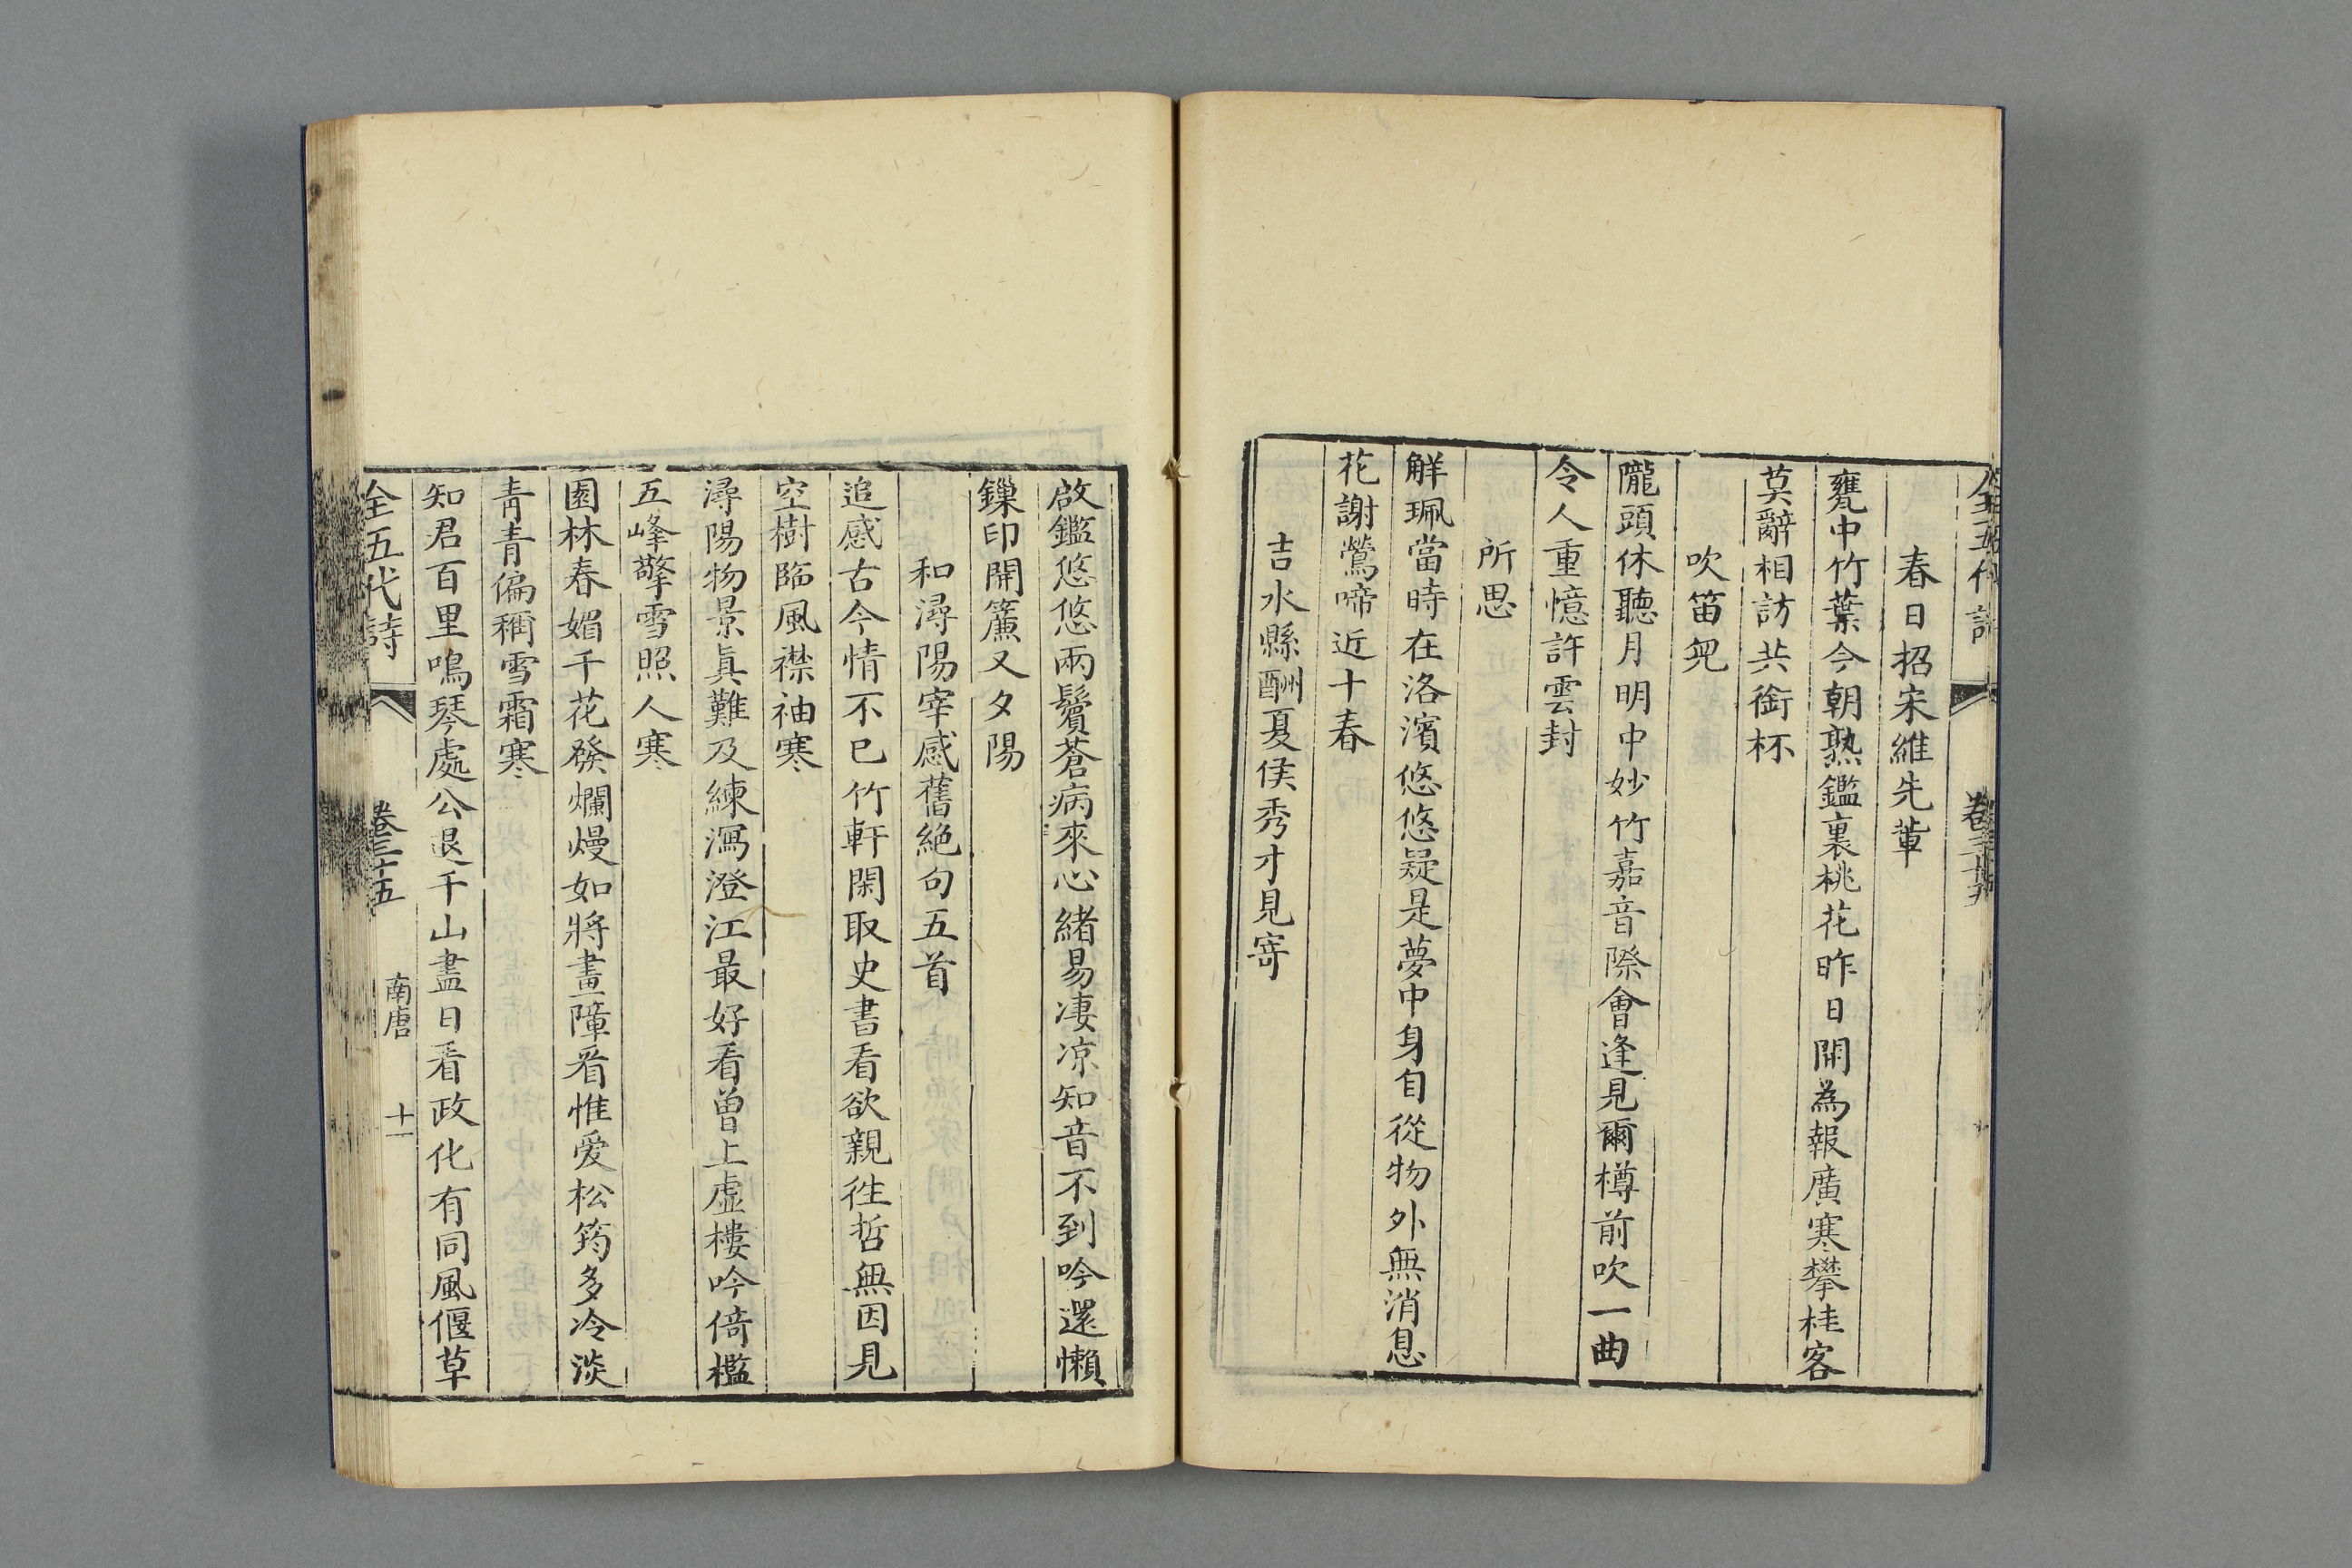 春日招宋維先輩
甕中竹葉今朝熟鑑裏桃花昨日開為報廣寒攀桂客
莫辭相訪共銜杯
吹笛兒
隴頭休聽月明中妙竹嘉音際會逢見爾樽前吹一曲
令人重憶許雲封
所思
解珮當時在洛濱悠悠疑是夢中身自從物外無消息
花謝鶯啼近十春
吉水縣酬夏侯秀才見寄
啟鑑悠悠兩鬢蒼病來心緒易凄凉知音不到吟還懶
鏁印開簾又夕陽
和潯陽宰感舊絕句五首
追感古今情不已竹軒閑取史書看欲親往哲無因見
空樹臨風襟袖寒
潯陽物景眞難及練瀉澄江最好看曾上虛樓吟倚檻
五峰擎雪照人寒
園林春媚千花發爛熳如將畫障看惟爱松筠多冷淡
靑青偏稱雪霜寒
知君百里鳴琴處公退千山盡日看政化有同風偃草
全五代詩 卷三十五 南唐 十一